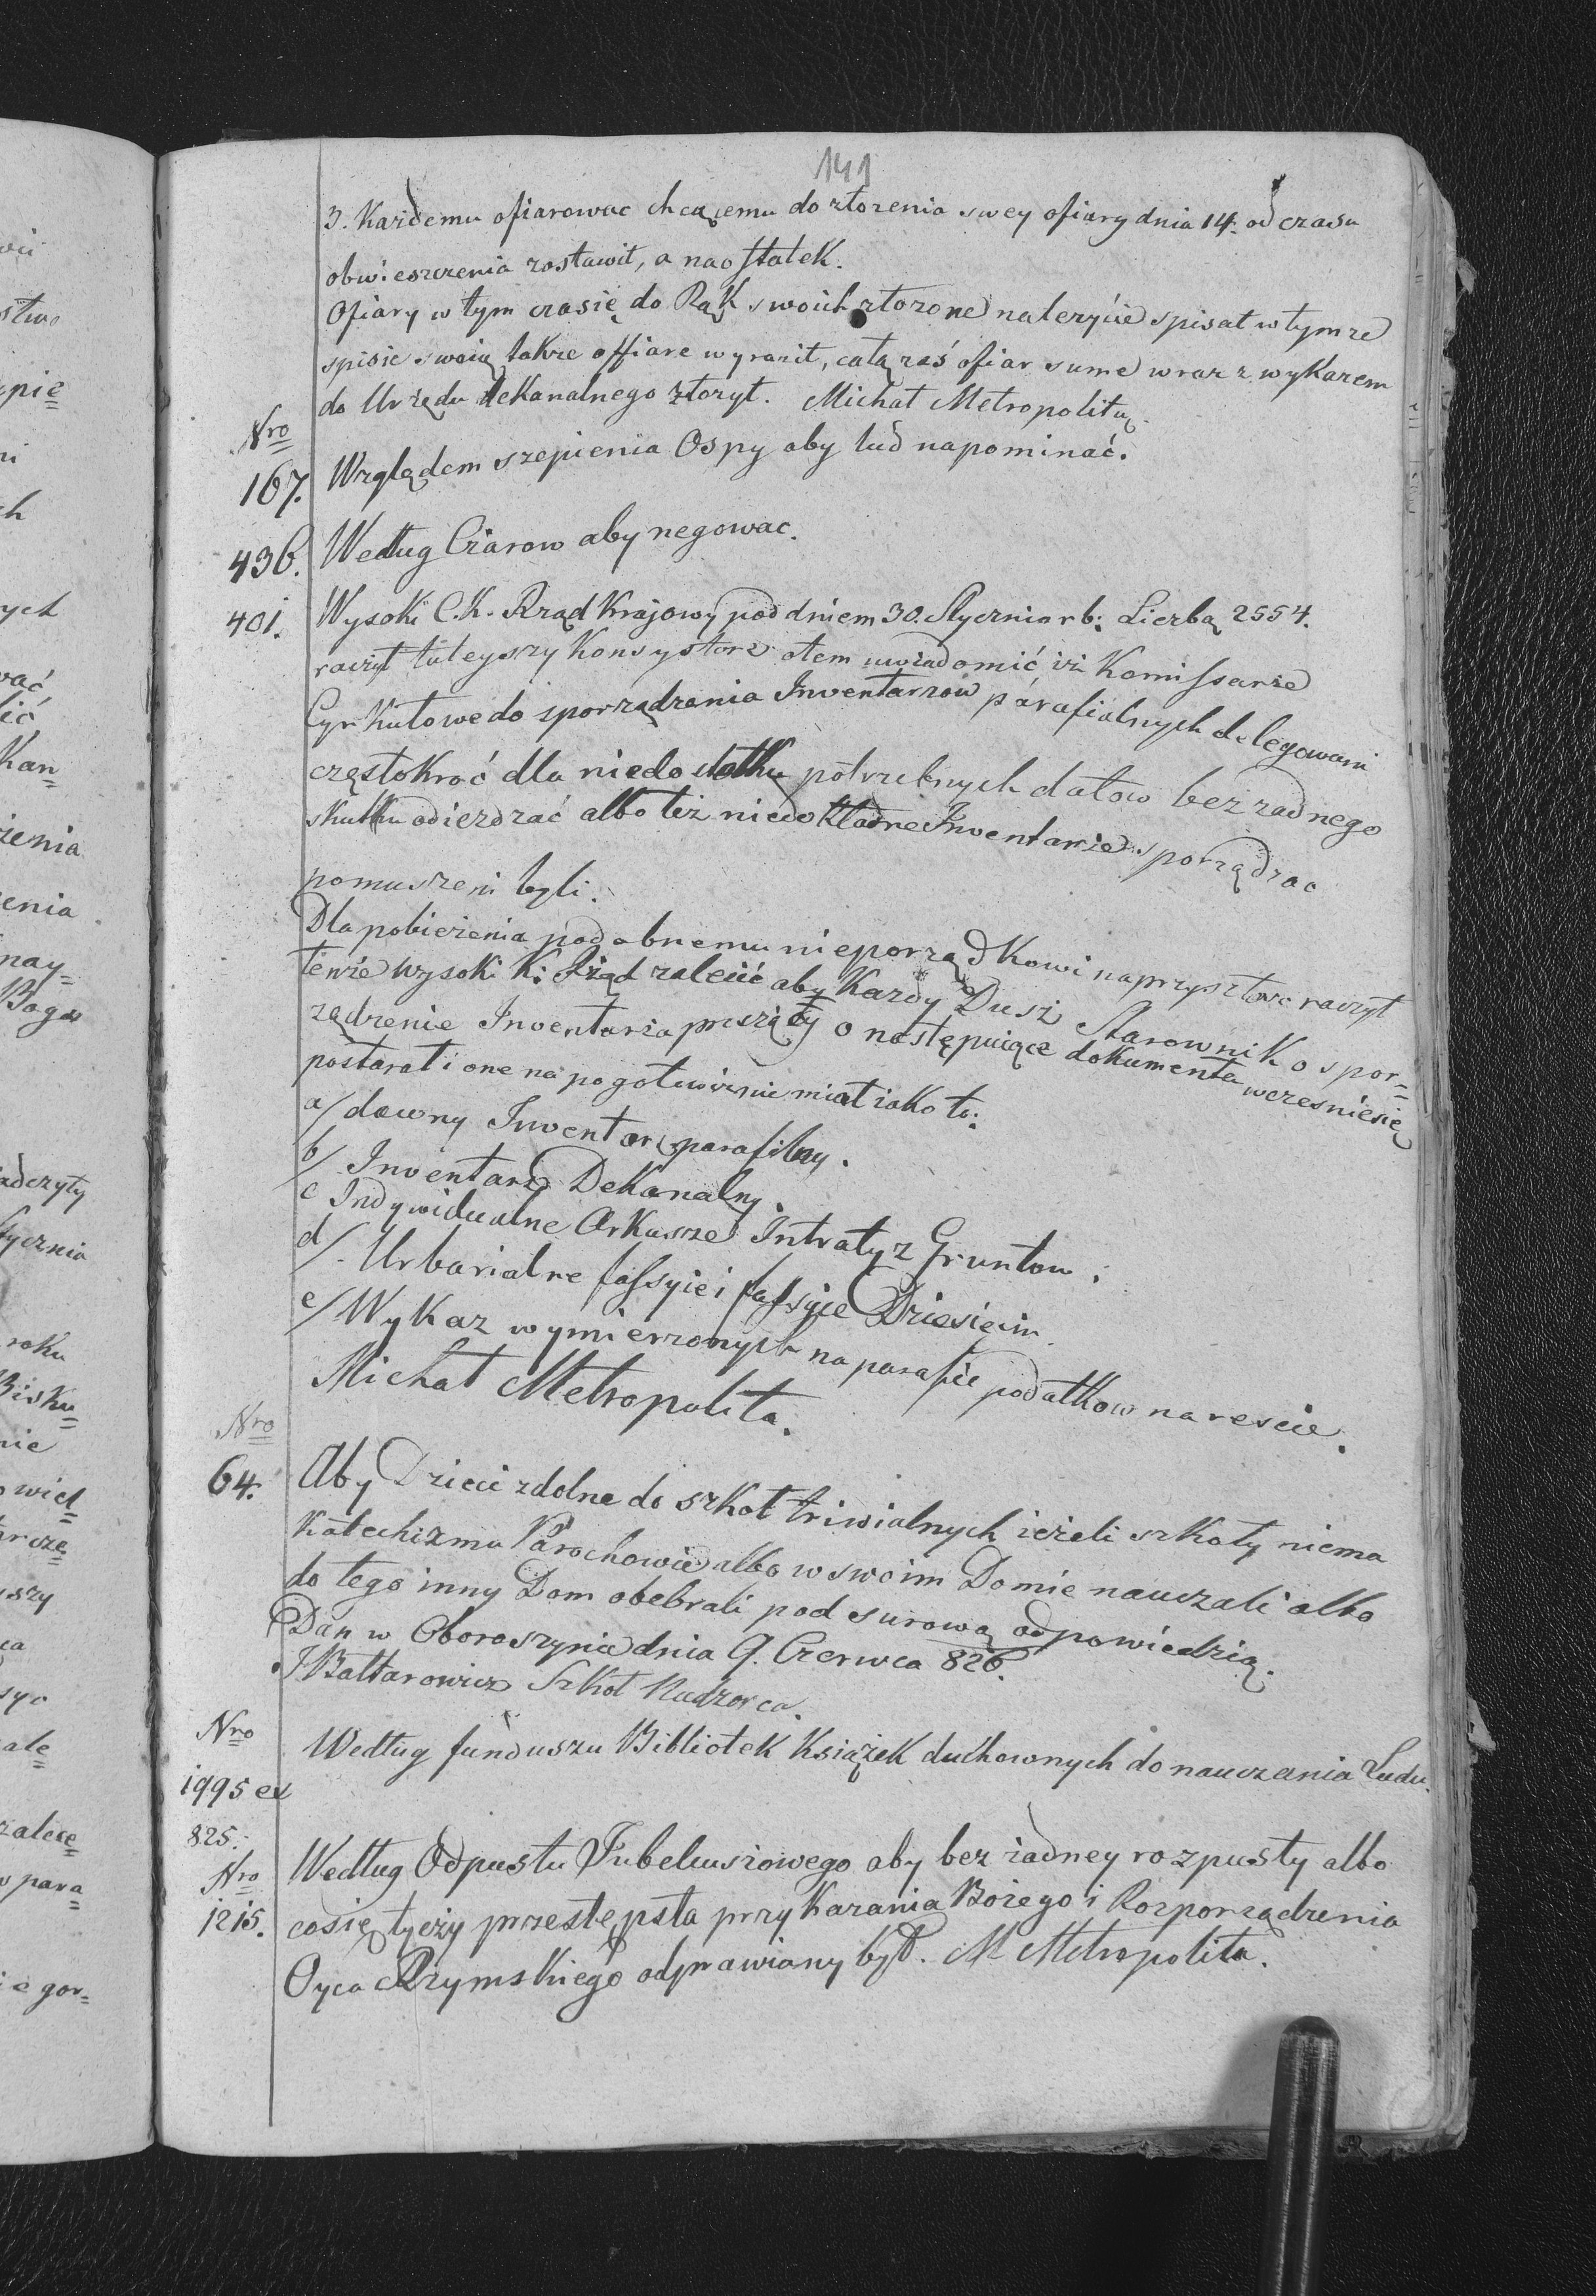 141
3. Każdemu ofiarowac chcącemu do złozenia swey ofiary dnia 14. od czasu
obwieszczenia zostawił, a naostatek.
Ofiary w tym czasię do Rąk swoich złozone nalezycie spisał w tymze
spisie swoię takze offiare wyraził, całą zaś ofiar sume wraz z wykazem
do Urzędu dekanalnego złozył. Michał Metropolitą.
Nro
167. Względem szepienia Ospy aby lud napominać.
436. Według Czarow aby negowac.
401. Wysoki C.K. Rząd Krajowy pod dniem 30. Stycznia r b: Liczbą 2554.
raczył tuteyszy Konsystorz otem uwiadomić iż Komissarze
Cyrkułowe do sporządzenia Inwentarzow parafialnych delegowani
częstokroć dla niedostatku potrzebnych datow bez zadnego
skutku odiezdzać albo też niedokładne Inwentarze sporządzac
pomuszeni byli.
Dla pobieżenia podobnemu nieporządkowi naprzyszłosc raczył
tenże Wysoki K: Rząd zalecić aby Kazdy Dusz Starownik o spor=
ządzenie Inwentarza przszięty o następuiące dokumenta wczesniesię
postarał i one na pogotowiunie miał iako to:
a/ dawny Inwentarz parafilny.
b/ Inwentarz Dekanalny.
c Indywidualne Arkusze Intraty z Gruntow.
d/. Urbarialne fassyie i fassyie Dziesięcin
e/ Wykaz wymierzonych na parafie podatkow nareście.
Michał Metropolita.
Nro
64. Aby Dzieci zdolne do szkoł triwialnych ieżeli szkoły niema
Katechizmu Parochowie albo w swoim Domie nauczali albo
do tego inny Dom obebrali pod surową odpowiedzią.
Dan w Oboroszynie dnia 9. Czerwca 826.
J Bałtarowicz Szkoł Nadzorca.
Nro
Według funduszu Bibliotek Książek duchownych do nauczania Ludu.
1995 ex
825.
Nro
Według Odpustu Jubeluszowego aby bez żadney rozpusty albo
1215. cosię tyczy przestępsta przykazania Bożego i Rozporządzenia
Oyca Rzymskiego odprawiany był. M Metropolita.